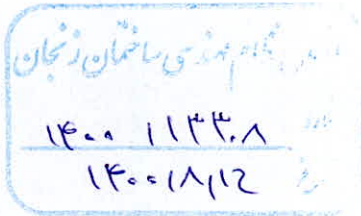 نظام مهندسی ساختمان زنجان
۱۴۰۰ ۱۱۳۳۰۸
۱۴۰۰/۸/۱۲